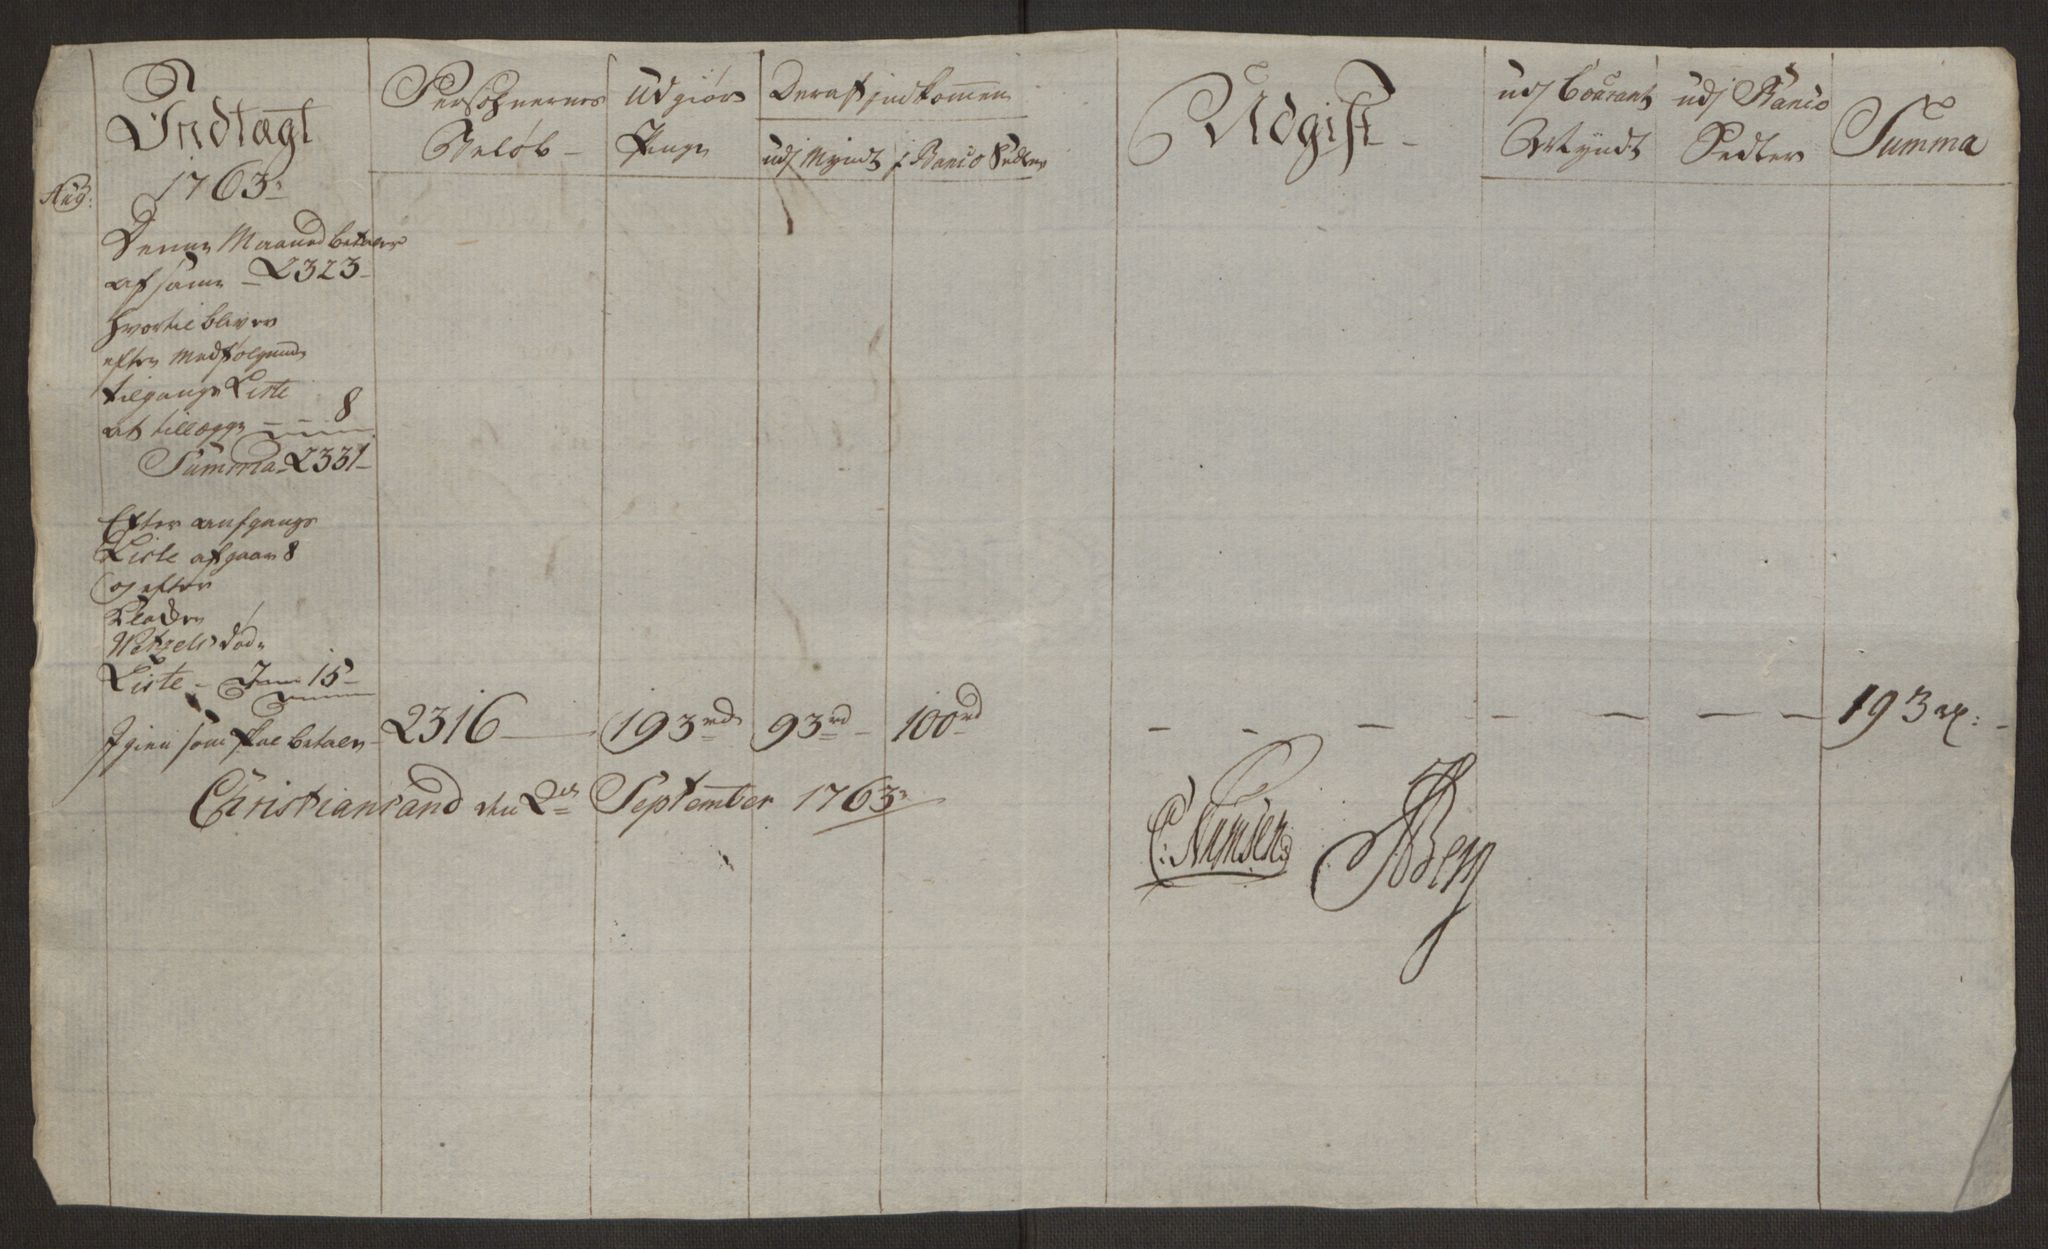 Indtægt
1763
Aug:
Persohnernes
Beløb
Udgiør
Penge
Deraf indkommen
udj Myndt j Banco Sedler
Udgift
udj Courant
Myndt
udj Banco
Sedler
Summa
Denne Maaned betaler
af samme 2323
hvortil bliver
efter medfølgende
tilgangs Liste
at tillægge 8
Summa 2331
Efter aufgangs
Liste afgaar 8
og efter
Klocker
Wetzels døde
Liste 15
Igien som skal betale 2316 193 rd 93 rd 100 rd 193 rd:
Christiansand den 2den September 1763